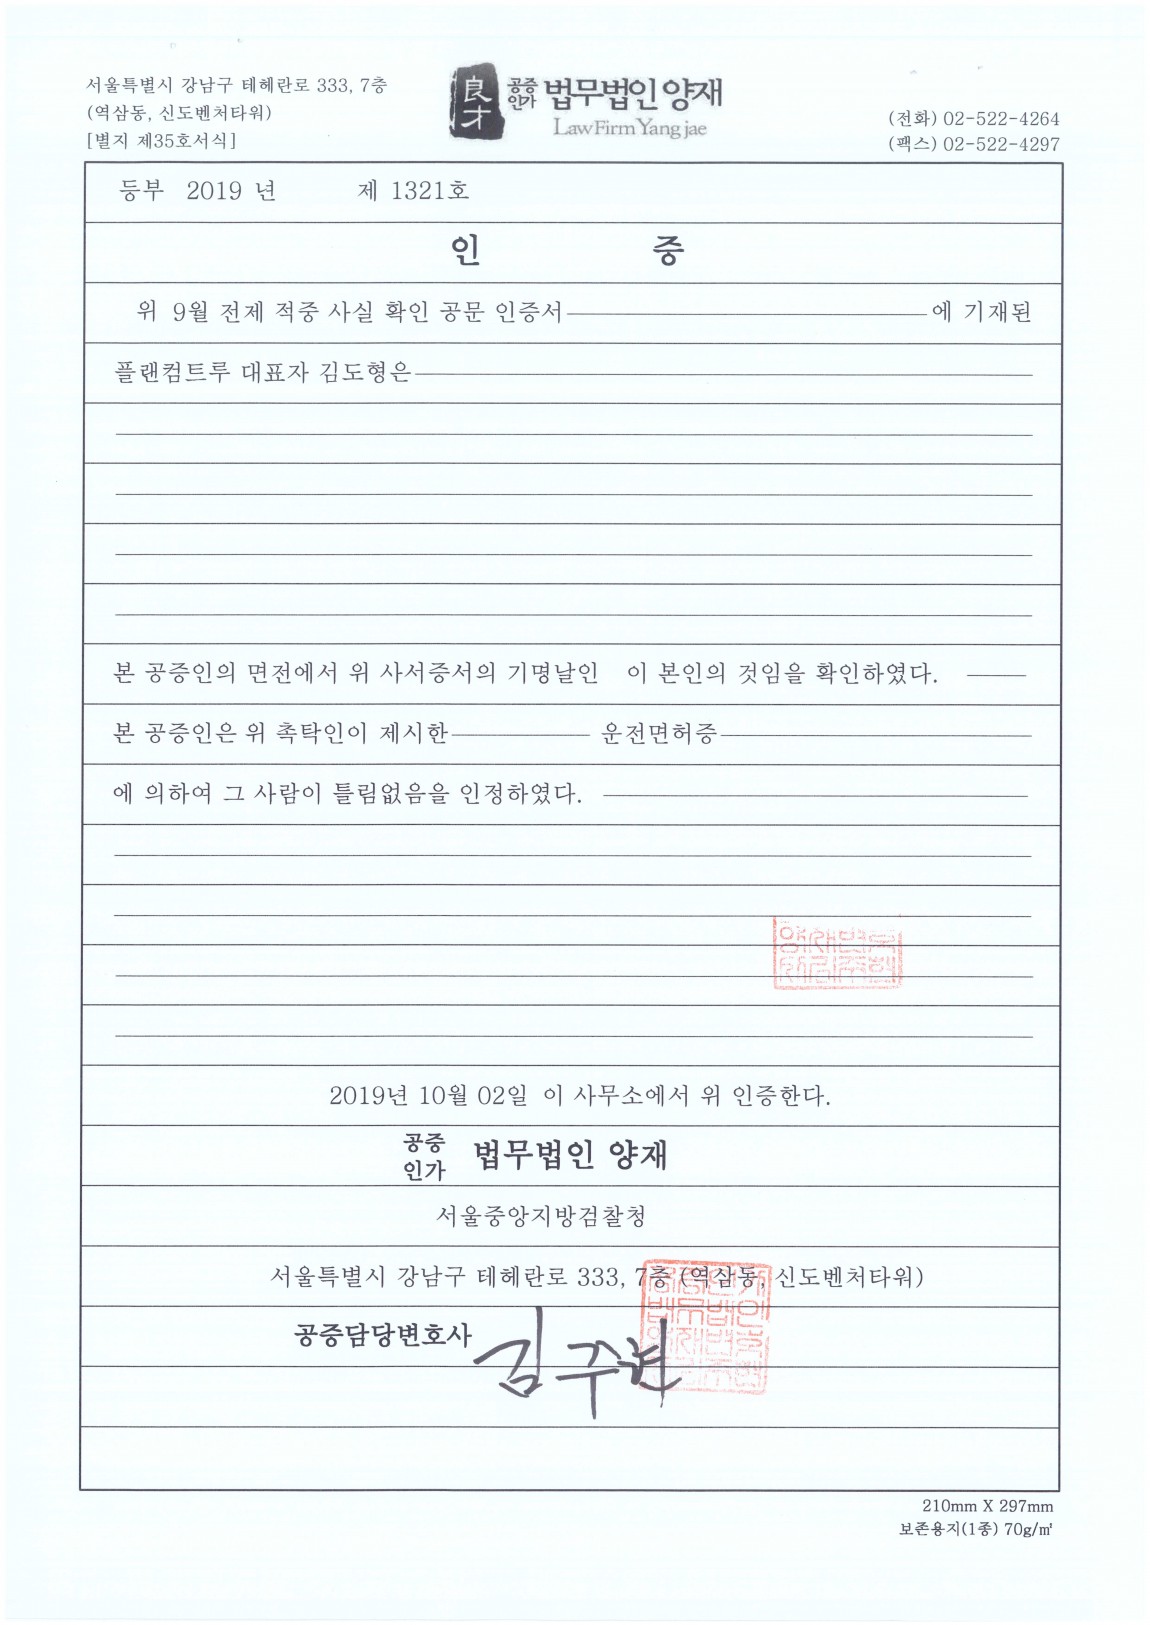 서울특별시 강남구 테헤란로 333, 7층
(역삼동, 신도벤처타워)
[별지 제35호서식]
良才
공증인가 법무법인 양재
LawFirm Yangjae
(전화) 02-522-4264
(팩스) 02-522-4297
등부 2019 년 제 1321호
인 증
위 9월 전제 적중 사실 확인 공문 인증서 에 기재된
플랜컴트루 대표자 김도형은
본 공증인의 면전에서 위 사서증서의 기명날인 이 본인의 것임을 확인하였다.
본 공증인은 위 촉탁인이 제시한 운전면허증
에 의하여 그 사람이 틀림없음을 인정하였다.
2019년 10월 02일 이 사무소에서 위 인증한다.
공증인가 법무법인 양재
서울중앙지방검찰청
서울특별시 강남구 테헤란로 333, 7층 (역삼동, 신도벤처타워)
공증담당변호사 김주현
210mm X 297mm
보존용지(1종) 70g/㎡